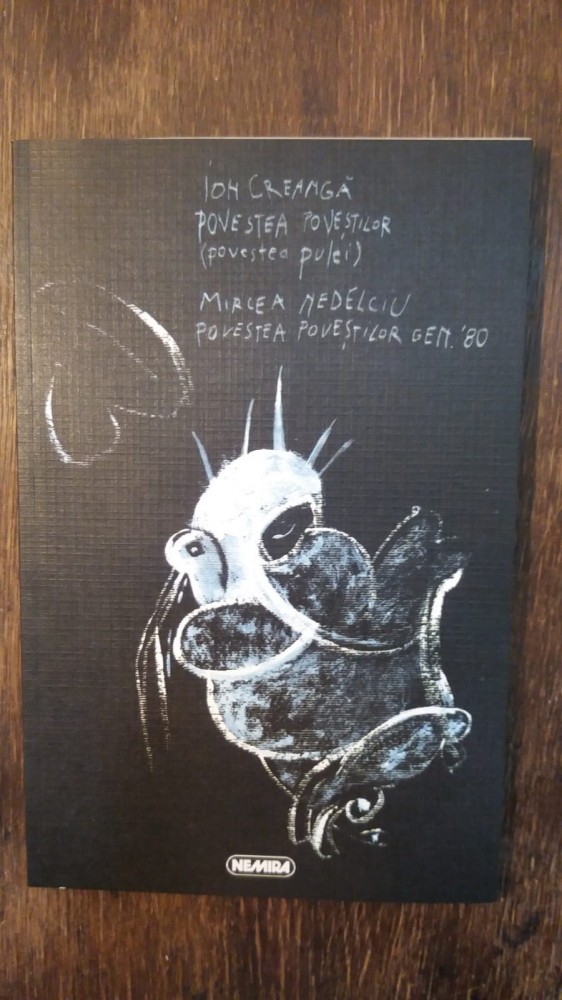 ION CREANGĂ
POVESTEA POVEȘTILOR
(povestea pulei)
MIRCEA NEDELCIU
POVESTEA POVEȘTILOR GEN. '80
NEMIRA